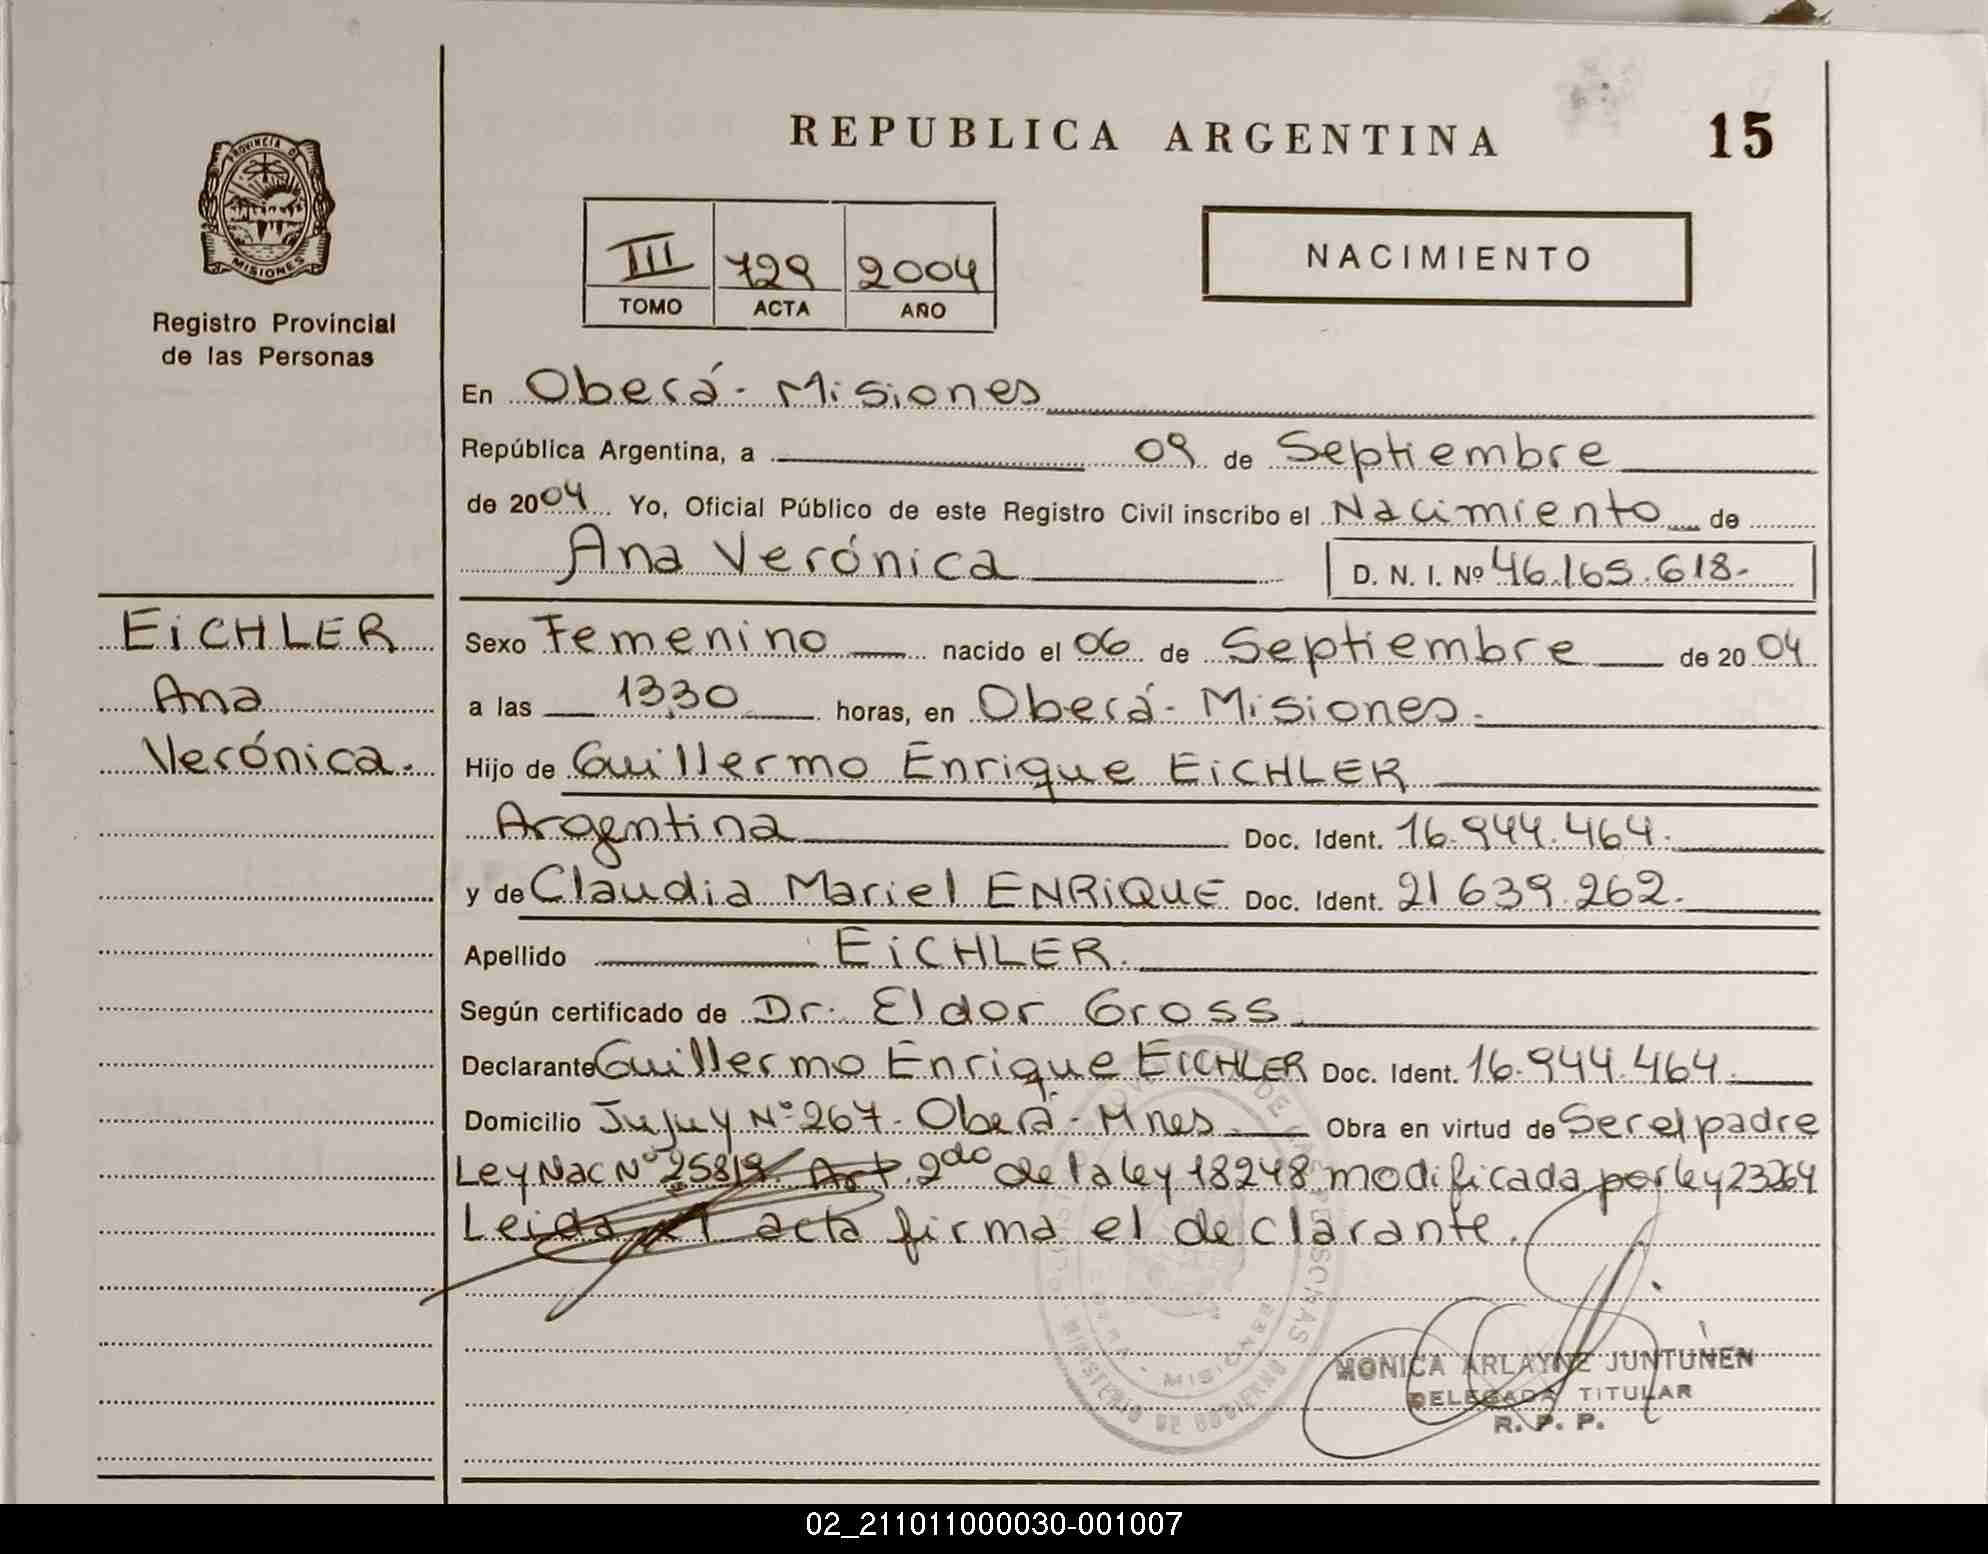 REPUBLICA ARGENTINA
15
PROVINCIA DE
MISIONES
Registro Provincial
de las Personas
III 729 2004
TOMO ACTA AÑO
NACIMIENTO
En Oberá - Misiones
República Argentina, a 09 de Septiembre
de 2004 Yo, Oficial Público de este Registro Civil inscribo el Nacimiento de
Ana Verónica D. N. I. Nº 46.165.618.-
EiCHLER
Ana
Verónica.
Sexo Femenino nacido el 06 de Septiembre de 2004
a las 13,30 horas, en Oberá - Misiones.
Hijo de Guillermo Enrique EiCHLER
Argentina Doc. Ident. 16.944.464.
y de Claudia Mariel ENRiQUE Doc. Ident. 21 639.262.
Apellido EiCHLER.
Según certificado de Dr. Eldor Gross
Declarante Guillermo Enrique EICHLER Doc. Ident. 16.944.464.
Domicilio Jujuy Nº 267. Oberá - Mnes. Obra en virtud de Ser el padre
Ley Nac Nº 25819 Art. 2do de la ley 18248 modificada por ley 23264
Leida el acta firma el declarante.
MINISTERIO DE GOBIERNO
MISIONES
MONICA ARLAYNE JUNTUNEN
DELEGADA TITULAR
R. P. P.
02_211011000030-001007